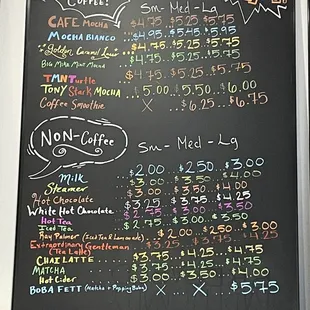 COFFEE!
Sm - Med - Lg
CAFE MOCHA ... $4.75...$5.25...$5.75
MOCHA BIANCO ... $4.95...$5.45...$5.95
Golden Caramel ... $4.75...$5.25...$5.75
Big Mike Mint Mound ... $4.75...$5.25...$5.75
TMNTurtle ... $4.75...$5.25...$5.75
TONY Stark MOCHA ... $5.00...$5.50...$6.00
Coffee Smoothie X ... $6.25...$6.75
NON-Coffee
Sm - Med - Lg
Milk ... $2.00...$2.50...$3.00
Steamer ... $3.00...$3.50...$4.00
Hot Chocolate ... $3.00...$3.50...$4.00
White Hot Chocolate ... $3.25...$3.75...$4.25
Hot Tea ... $2.50...$3.00...$3.50
Iced Tea ... $2.75...$3.00...$3.50
Ray Palmer (Iced Tea & Lemonade) ... $2.00...$2.50...$3.00
Extraordinary Gentleman ... $3.25...$3.75...$4.25
(Tea Latte)
CHAI LATTE ... $3.75...$4.25...$4.75
MATCHA ... $3.75...$4.25...$4.75
Hot Cider ... $3.00...$3.50...$4.00
BOBA FETT (Matcha + Popping Boba) X X $5.75